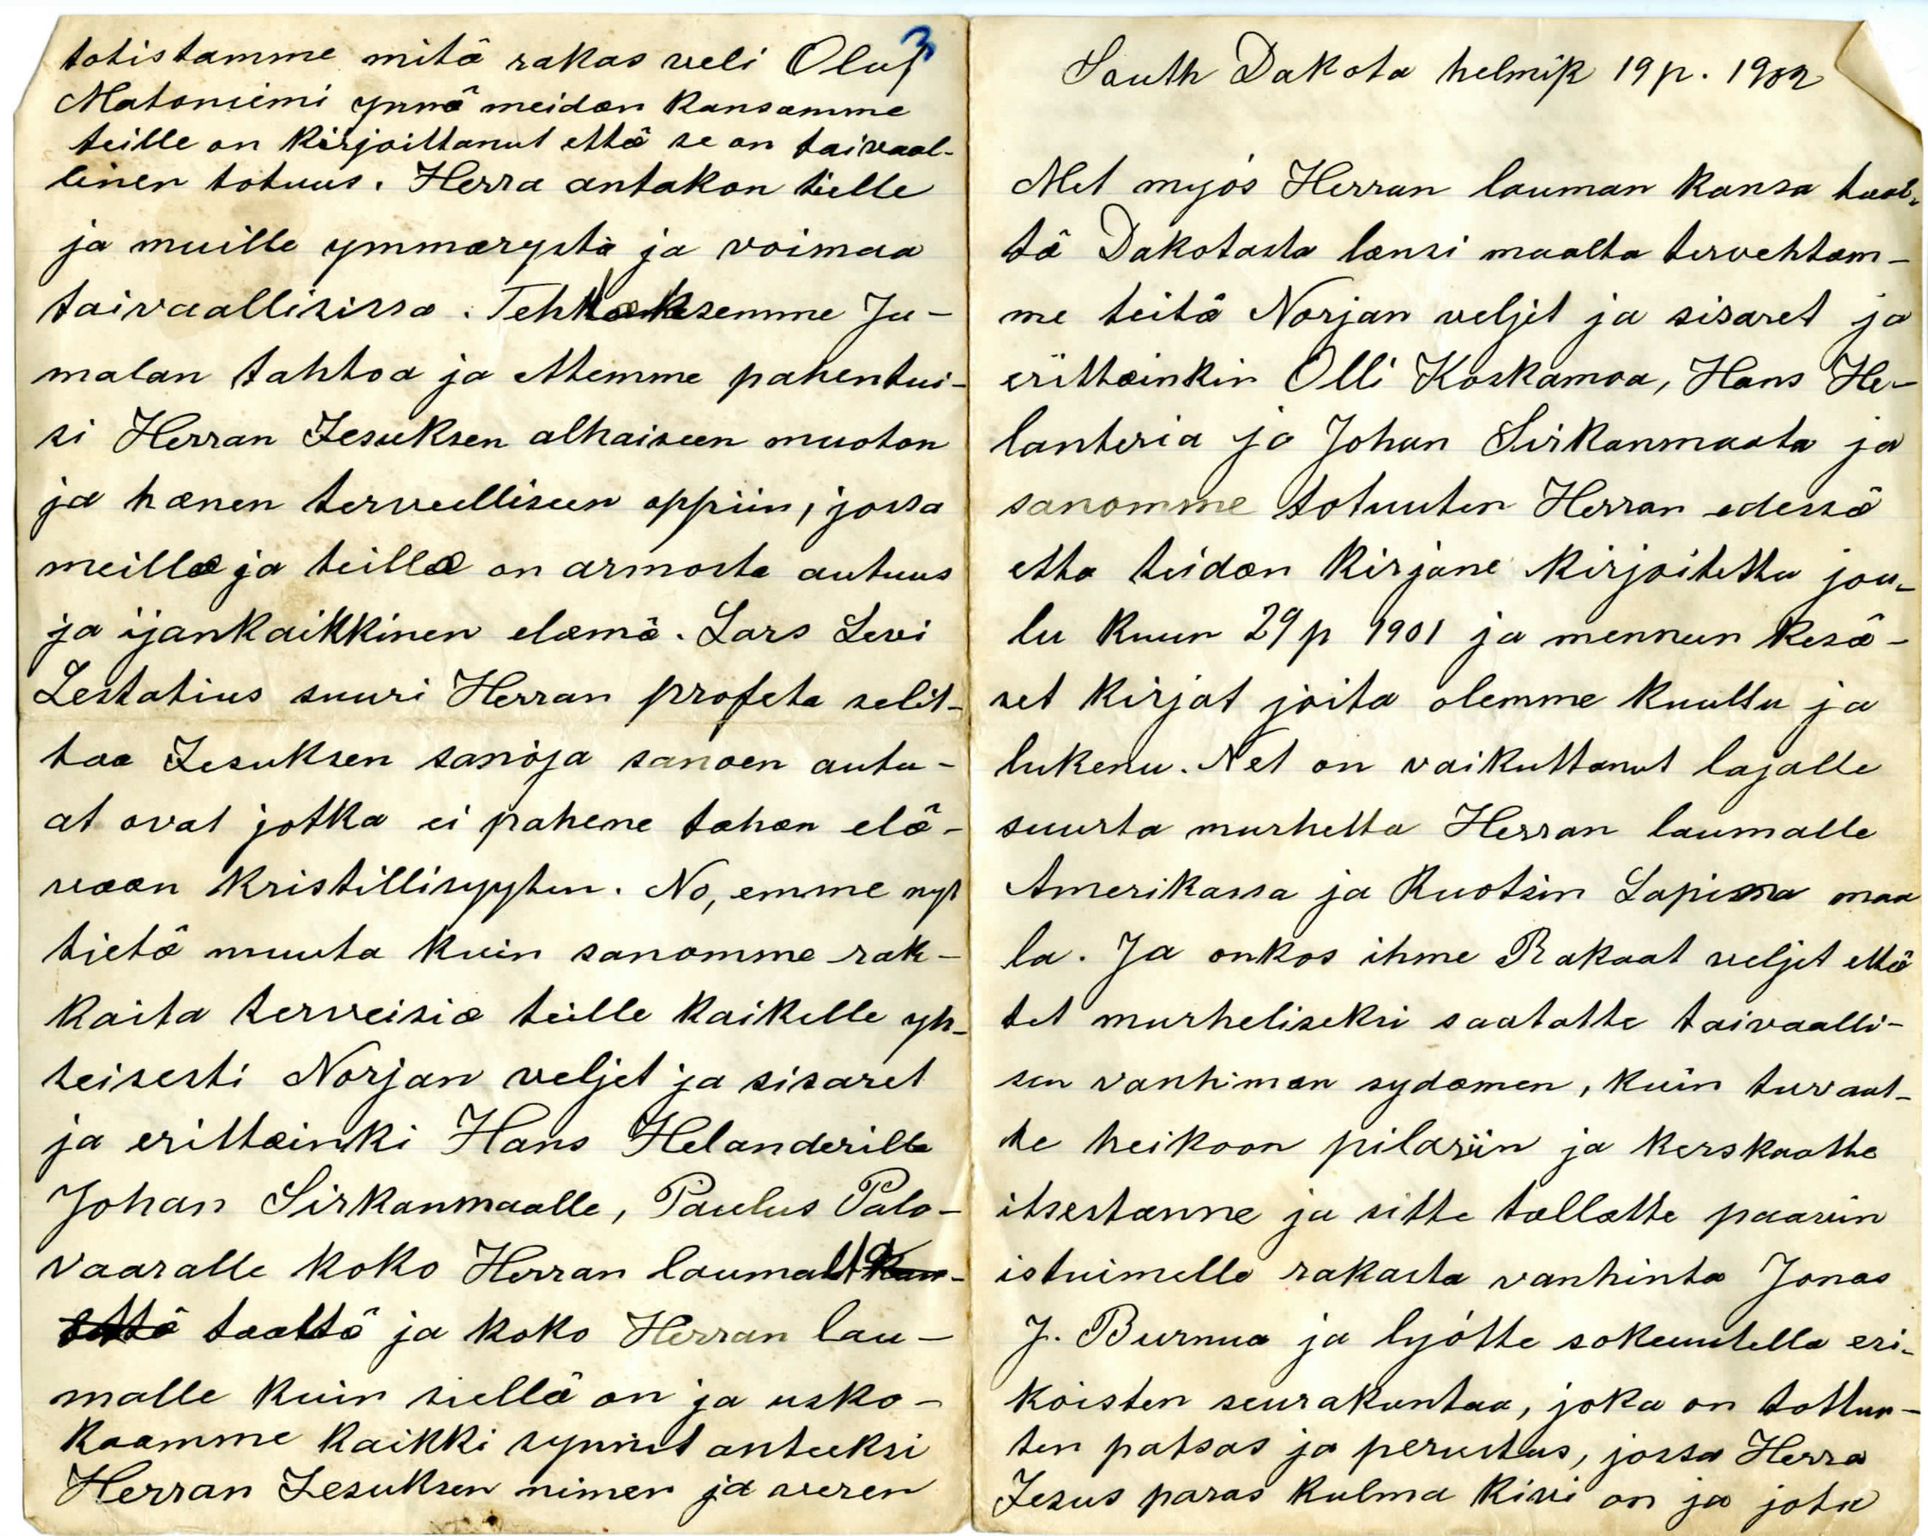 totistamme mitä rakas veli Oluf
3
Matoniemi ynnä meidæn kansamme
teille on kirjoittanut että se on taivaal-
linen totuus. Herra antakon teille
ja muille ymmærystä ja voimaa
taivaallisissa. Tehhæksemme Ju-
malan tahtoa ja ettemme pahentui-
si Herran Jesuksen alhaiseen muoton
ja hænen terveelliseen oppiin, jossa
meillæ ja teillæ on armosta autuus
ja ijankaikkinen elæmä. Lars Levi
Lestatius suuri Herran profeta selit-
taa Jesuksen sanoja sanoen autu-
at ovat jotka ei pahene tahæn elä-
væan kristillisyyten. No, emme nyt
tietä muuta kuin sanomme rak-
kaita terveisiæ teille kaikelle yh-
teisesti Norjan veljet ja sisaret
ja erittæinki Hans Helanderille
Johan Sirkanmaalle, Paulus Palo-
vaaralle koko Herran laumalt
taaltä ja koko Herran lau-
malle kuin siellä on ja usko-
kaamme kaikki synnit anteeksi
Herran Jesuksen nimen ja veren
South Dakota helmik 19 p. 1902
Met myós Herran lauman kansa taal-
tä Dakotasta lænsi maalta tervehtæm-
me teitä Norjan veljet ja sisaret ja
erittæinkin Olli Koskamoa, Hans He-
lanteria ja Johan Sirkanmaata ja
sanomme totuuten Herran edessä
etta teidæn kirjane kirjoitettu jou-
lu kuun 29 p 1901 ja mennen kesä-
set kirjat joita olemme kuullu ja
lukenu. Net on vaikuttanut lajalle
suurta murhetta Herran laumalle
Amerikassa ja Ruotsin Lapinna maa
la. Ja onkos ihme Rakaat veljet ettæ
tet murheliseksi saatatte taivaalli-
sen vanhiman sydæmen, kuin turvaat-
te heikoon pilariin ja kerskaatte
itsestænne ja sitte tællætte paavin
istuimelle rakasta vanhinta Jonas
J. Burnua ja lyótte sokeuutella esi-
koisten seurakuntaa, joka on tottuu-
ten patsas ja perustus, jossa Herra
Jesus paras kulma kivi on ja jota